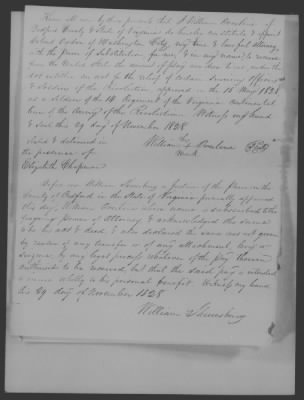 Know all men by these presents that I William Bowline of
County & State of Virginia do hereby constitute & appoint
of Washington City, my true & lawful attorney,
with the power of Substitution for me, & in my name, to receive
from the United States the amount of pay now due to me, under the
act entitled an act for the relief of certain Surviving Officers
& Soldiers of the Revolution approved on the 15 May 1828
as a Soldier of the 14 Regiment of the Virginia Continental
line of the Army of the Revolution Witness my hand
& Seal this 29 day of November 1828
his
William X Bowline Seal
mark
Sealed & delivered in
the presence of
Elizabeth Chapman
Before me William a Justice of the Peace in the
County of Bedford in the State of Virginia personally appeared
this day William Bowline whose name is subscribed to the
foregoing power of Attorney & acknowledged the same
to be his act & deed & also declared the same was not given
by reason of any transfer or of any attachment, levy or
seizure by any legal process whatever of the pay therein
authorized to be received but that the said pay is intended
to enure wholly to his personal benefit. Witness my hand
this 29 day of November 1828
William